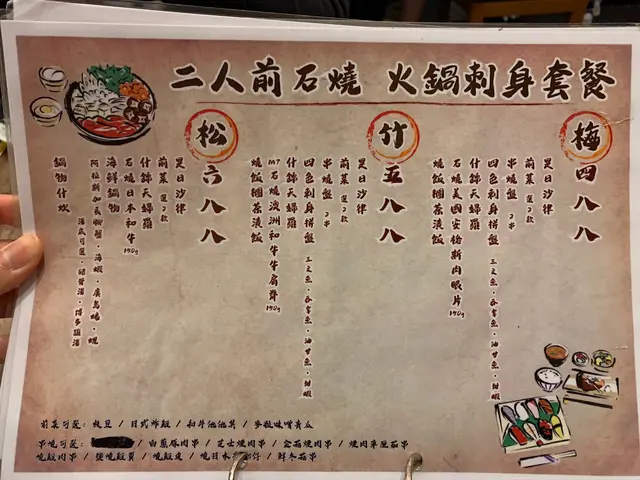 二人前石燒 火鍋刺身套餐
梅 四八八
是日沙律
前菜 選2款
串燒盤 2串
四色刺身拼盤 三文魚·吞拿魚·油甘魚·甜蝦
什錦天婦羅
石燒美國安格斯肉眼片 150g
燒飯糰茶漬飯
竹 五八八
是日沙律
前菜 選2款
串燒盤 2串
四色刺身拼盤 三文魚·吞拿魚·油甘魚·甜蝦
什錦天婦羅
M7石燒澳洲和牛肩脊 150g
燒飯糰茶漬飯
松 六八八
是日沙律
前菜 選2款
什錦天婦羅
石燒日本和牛 150g
海鮮鍋物
阿拉斯加長腳蟹·海蝦·廣島蠔·蜆
湯底可選·豚骨湯·博多雞湯
鍋物什炊
前菜可選: 枝豆 / 日式炸雞 / 和牛他他其 / 麥散味噌青瓜
串燒可選: / 白鱔豚肉串 / 芝士燒肉串 / 金菇燒肉串 / 燒肉車厘茄串
燒雞肉串 / 鹽燒雞翼 / 燒雞皮 / 燒日本 / 鮮冬菇串